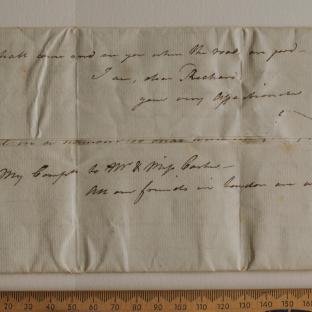 shall come and see you when the roads are good -
I am, dear Richard
your very affectionate
My Compts to Mr & Miss
All our friends in London are w
20 30 40 50 60 70 80 90 100 110 120 130 140 150 160